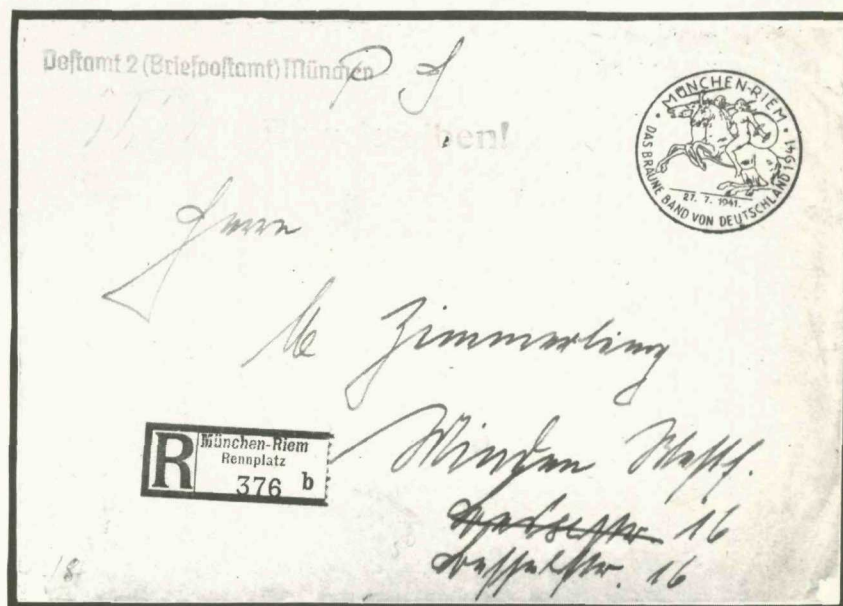 Postamt 2 (Briefpostamt) München
P S
ben!
MÜNCHEN-RIEM
27. 7. 1941.
DAS BRAUNE BAND VON DEUTSCHLAND 1941
Herrn
Zimmerling
Minden Westf.
16
Besselstr. 16
R München-Riem
Rennplatz
376 b
18